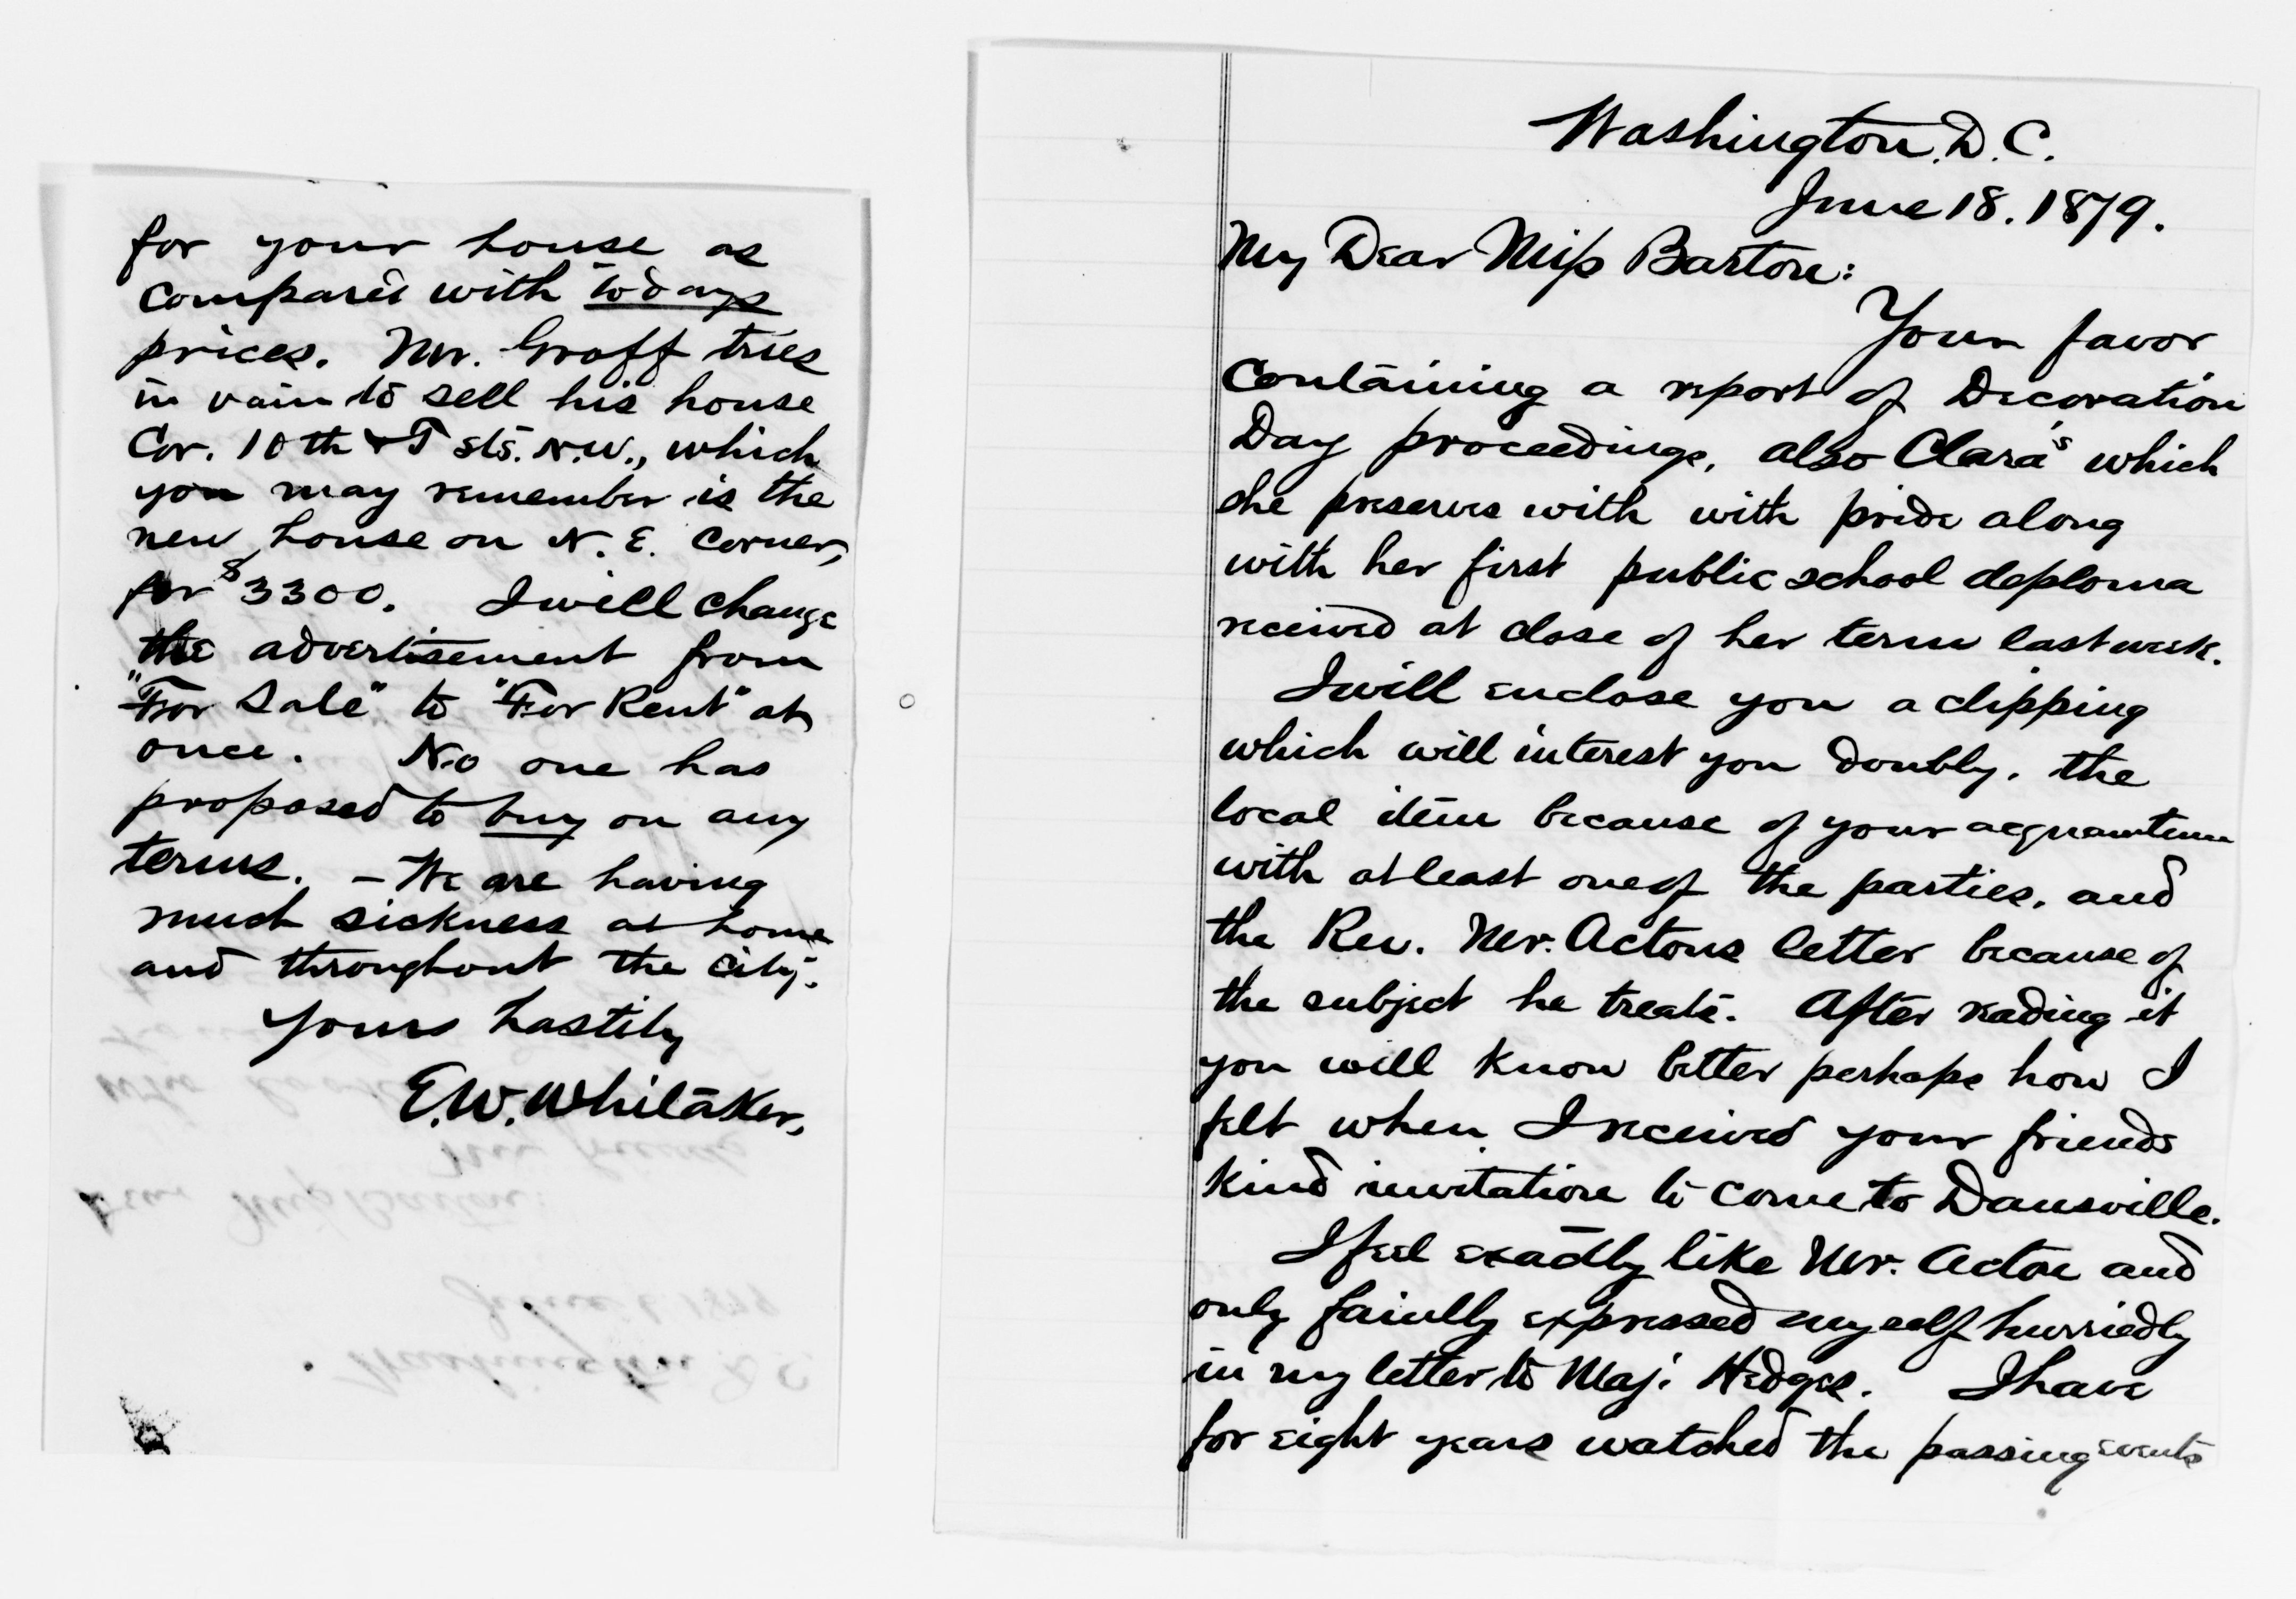 for your house as
compared with todays
prices. Mr. Groff tries
in vain to sell his house
Cor. 10th & T sts. N.W., which
you may remember is the
new house on N. E. Corner,
for $3300. I will change
the advertisement from
"For Sale" to "For Rent" at
once. No one has
proposed to buy on any
terms. – We are having
much sickness at home
and throughout the city.
Yours hastily
E.W. Whitaker,
Washington. D. C.
June 18. 1879.
My Dear Miss Barton:
Your favor
Containing a report of Decoration
Day proceedings, also Clara's which
she preserves with with pride along
with her first public school deploma
received at close of her term last week.
I will enclose you a clipping
which will interest you doubly. the
local item because of your acquaintence
with at least one of the parties, and
the Rev. Mr. Actons letter because of
the subject he treats. After reading it
you will know better perhaps how I
felt when I received your friends
kind invitation to come to Dansville.
I feel exactly like Mr. Acton and
only faintly expressed myself hurriedly
in my letter to Maj. Hedges. I have
for eight years watched the passing events